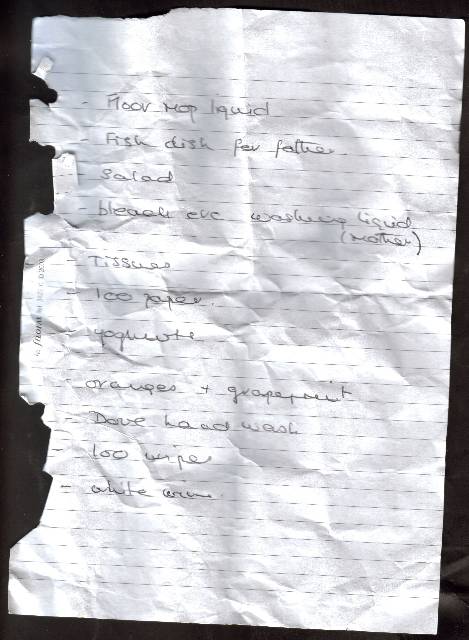 - Floor mop liquid
- Fish dish for father
- salad
- bleach etc washing liquid
(Mother)
- Tissues
- loo paper.
- yoghurts
- oranges + grapefruit
- Dove hand wash
- loo wipes
- white wine.